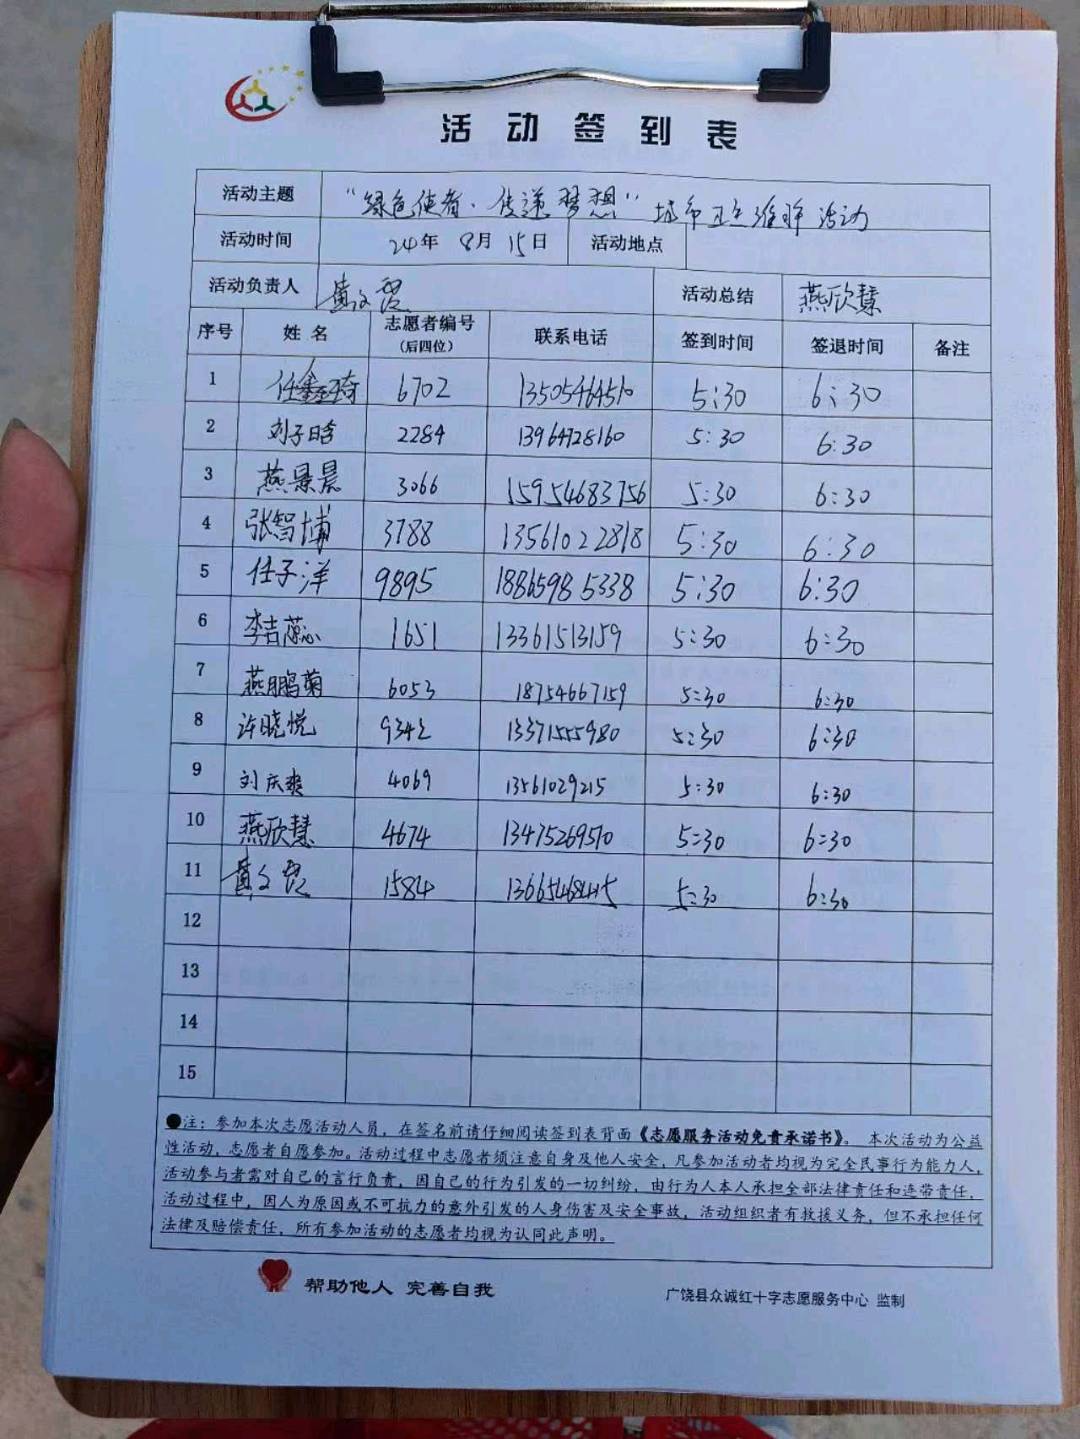 活动签到表
活动主题 “绿色使者·传递梦想”城市卫生维护活动
活动时间 24年 8月 15日 活动地点
活动负责人 黄文 活动总结 燕欣慧
序号 姓名 志愿者编号 联系电话 签到时间 签退时间 备注
(后四位)
1 任鑫琦 6702 13505464510 5:30 6:30
2 刘子晗 2284 13964728160 5:30 6:30
3 燕景晨 3066 15954683756 5:30 6:30
4 张智博 3788 13561022818 5:30 6:30
5 任子洋 9895 18865985338 5:30 6:30
6 李吉蕊 1651 13361513159 5:30 6:30
7 燕鹏菊 6053 18754667159 5:30 6:30
8 许晓悦 9342 13371555980 5:30 6:30
9 刘庆爽 4069 13561029215 5:30 6:30
10 燕欣慧 4674 13475269570 5:30 6:30
11 黄文 1584 5:30 6:30
12
13
14
15
●注：参加本次志愿活动人员，在签名前请仔细阅读签到表背面《志愿服务活动免责承诺书》。本次活动为公益
性活动，志愿者自愿参加。活动过程中志愿者须注意自身及他人安全，凡参加活动者均视为完全民事行为能力人，
活动参与者需对自己的言行负责，因自己的行为引发的一切纠纷，由行为人本人承担全部法律责任和连带责任，
活动过程中，因人为原因或不可抗力的意外引发的人身伤害及安全事故，活动组织者有救援义务，但不承担任何
法律及赔偿责任，所有参加活动的志愿者均视为认同此声明。
帮助他人 完善自我
广饶县众诚红十字志愿服务中心 监制